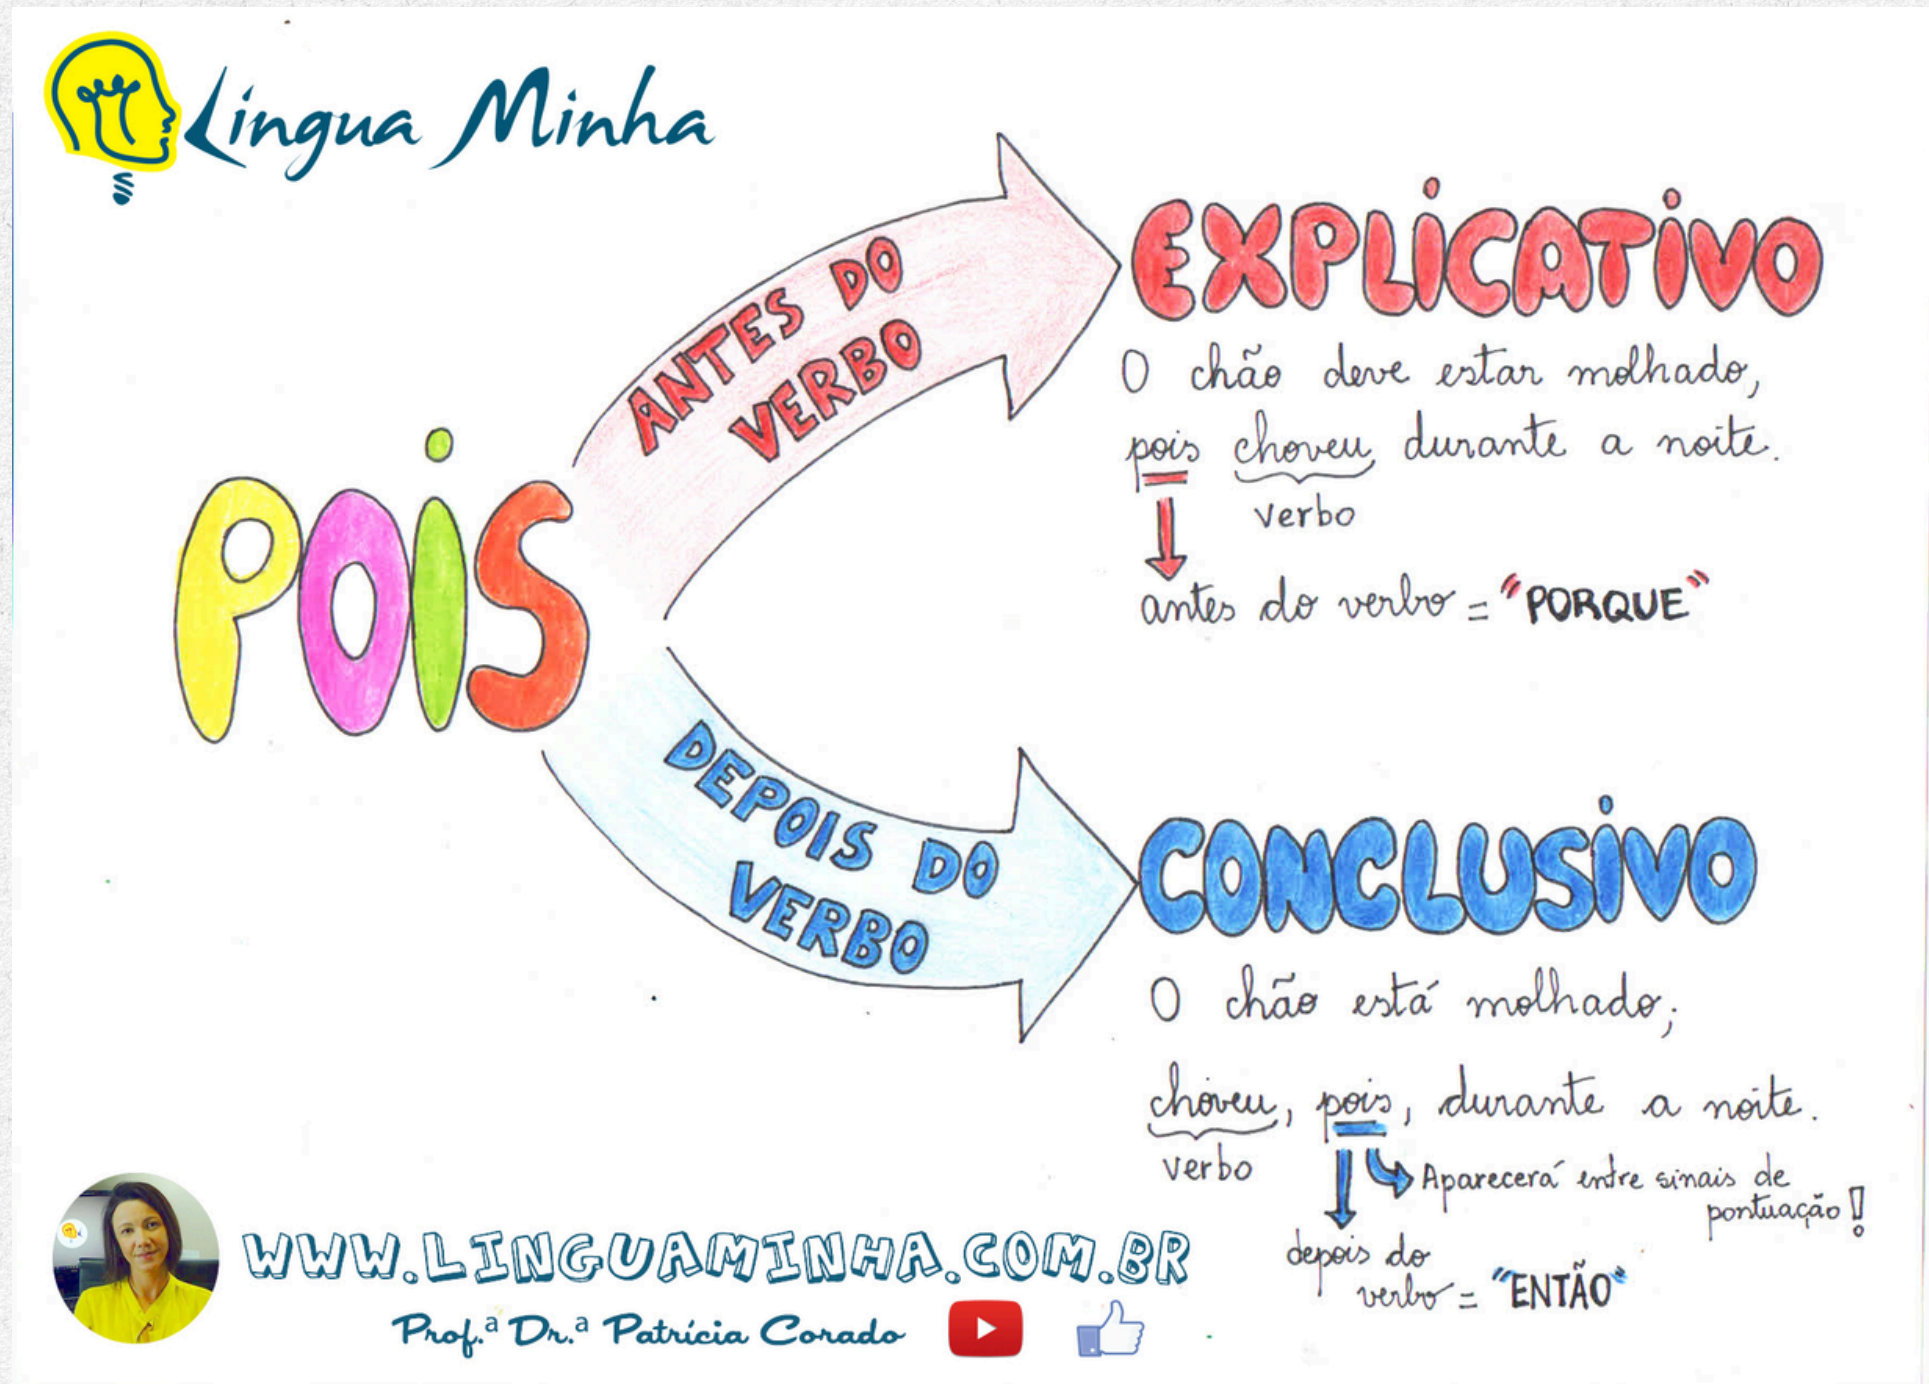 Língua Minha
POIS
ANTES DO
VERBO
EXPLICATIVO
O chão deve estar molhado,
pois choveu durante a noite.
verbo
antes do verbo = "PORQUE"
DEPOIS DO
VERBO
CONCLUSIVO
O chão está molhado;
choveu, pois, durante a noite.
verbo
Aparecerá entre sinais de
pontuação!
depois do
verbo = "ENTÃO"
WWW.LINGUAMINHA.COM.BR
Prof.ª Dr.ª Patrícia Corado